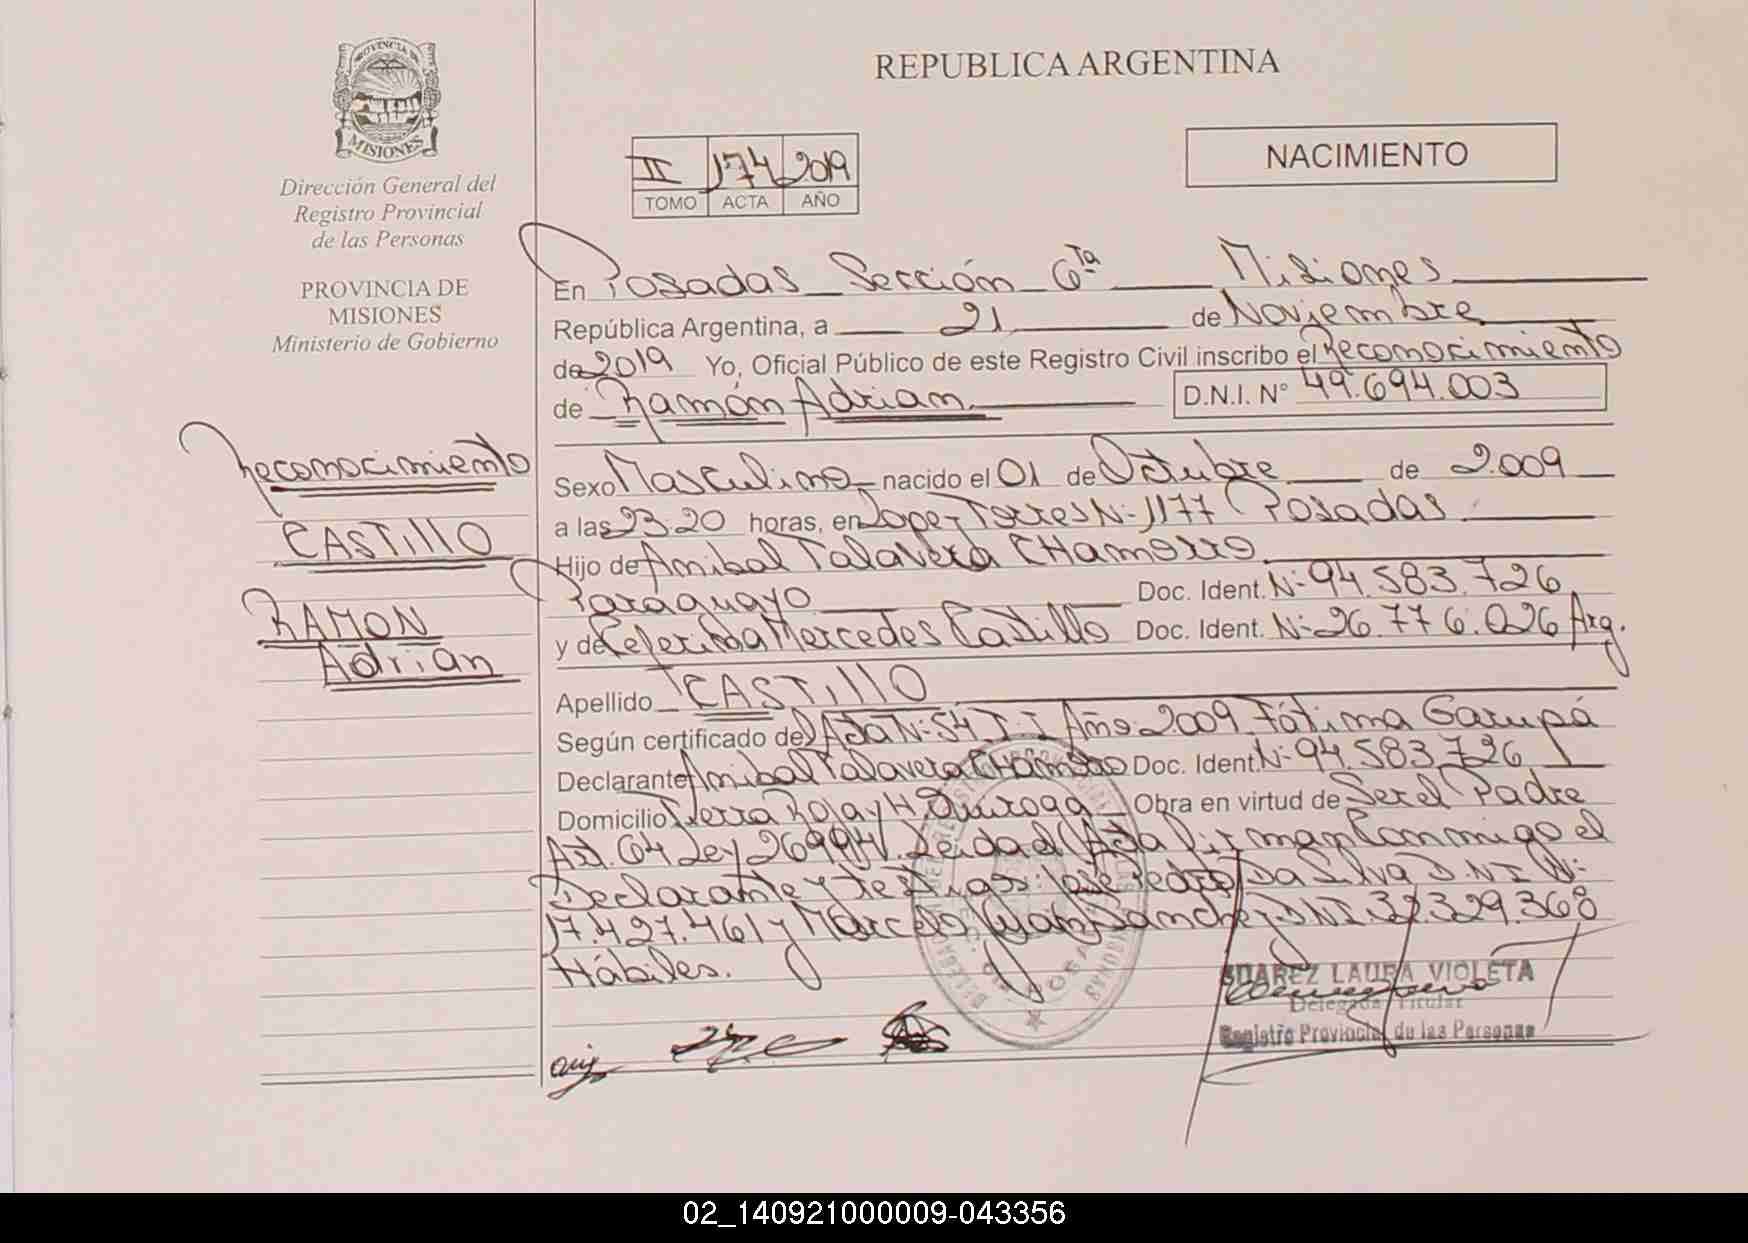 PROVINCIA DE
MISIONES
Dirección General del
Registro Provincial
de las Personas
PROVINCIA DE
MISIONES
Ministerio de Gobierno
Reconocimiento
CASTILLO
RAMON
Adrián
REPUBLICA ARGENTINA
II 174 2019
TOMO ACTA AÑO
NACIMIENTO
En Posadas Sección 6ta Misiones
República Argentina, a 21 de Noviembre
de 2019 Yo, Oficial Público de este Registro Civil inscribo el Reconocimiento
de Ramón Adrian D.N.I. N° 49.694.003
Sexo Masculino nacido el 01 de Octubre de 2.009
a las 23.20 horas, en Lopez Torres N: 1177 Posadas
Hijo de Anibal Talavera CHamorro
Paraguayo Doc. Ident. N: 94.583.726
y de Ceferina Mercedes Castillo Doc. Ident. N: 26.776.026 Arg.
Apellido CASTILLO
Según certificado del Acta N: 54 T. I Año 2009 Fátima Garupá
Declarante Anibal Talavera CHamorro Doc. Ident. N: 94.583.726
Domicilio Tierra Roja y H Quiroga Obra en virtud de Ser el Padre
Art. 64 Ley 26994. Leida el Acta Firman Conmigo el
Declarante y Testigos: José Pedro Da Silva D.N.I N:
17.427.461 y Marcelo Sanchez DNI. 32.329.368
Hábiles.
SUAREZ LAURA VIOLETA
Delegada Titular
Registro Provincial de las Personas
02_140921000009-043356